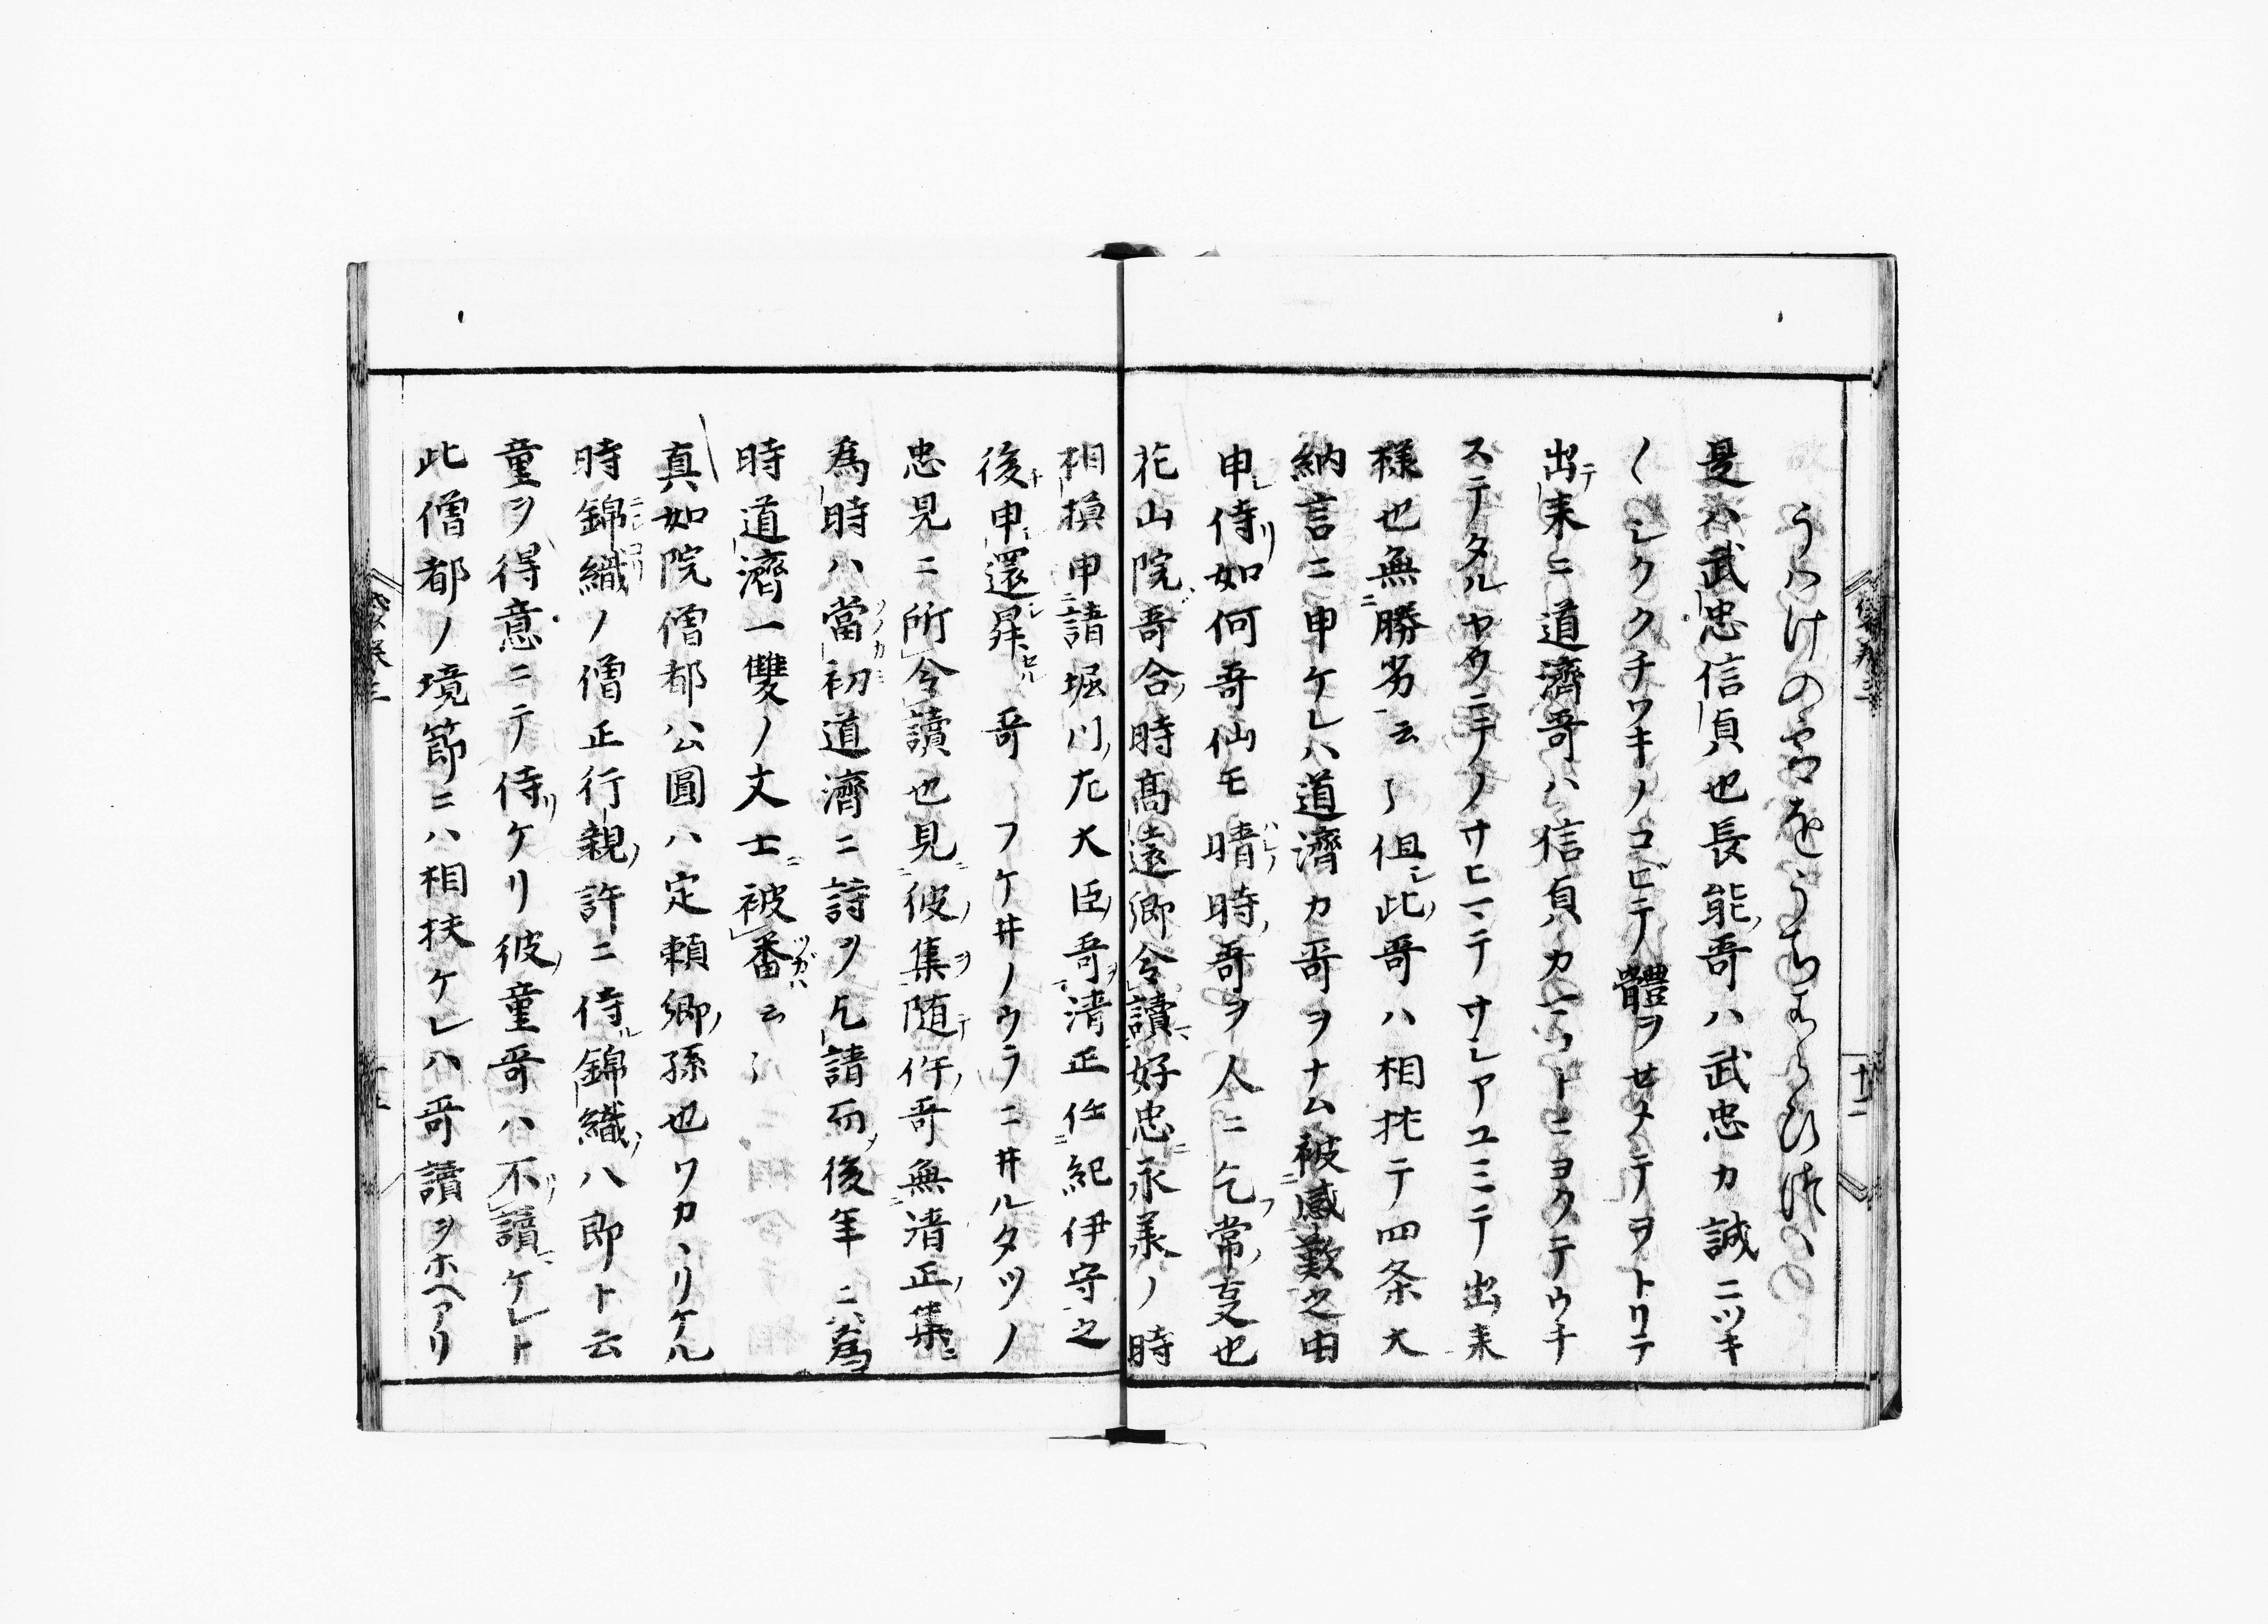 うはけの雪をうちはらひつゝ
是ハ武忠信貞也長能哥ハ武忠カ誠ニツキ
〱シククチワキノコビテノ體ヲせメテヲトリテ
出来ニ道濟哥ハ信貞カ
トニヨクテウチ
ステタルヤウニテノサヒマテサシアユミテ出来
様也無勝劣云〻但此哥ハ相扶テ四条大
納言ニ申ケレハ道濟カ哥ヲナム被感歎之由
申侍如何哥仙モ晴時哥ヲ人ニ乞常亊也
花山院哥合時髙遠卿令讀好忠永承ノ時
相摸申請堀川右大臣哥清正任紀伊守之
後申還昇哥
フケ井ノウラニ井ルタツノ
忠見ニ所令讀也見彼集随件哥無清正集
為時ハ當初道濟ニ詩ヲ乞請而後年ニハ為
時道濟一雙ノ文士被番云〻
真如院僧都公圓ハ定頼卿孫也ワカヽリケル
時錦織ノ僧正行親許ニ侍錦織ハ郎ト云
童ヲ得意ニテ侍ケリ彼童哥ハ不讀ケレト
此僧都ノ境節ニハ相扶ケレハ哥讀ヲホヘアリ
十二